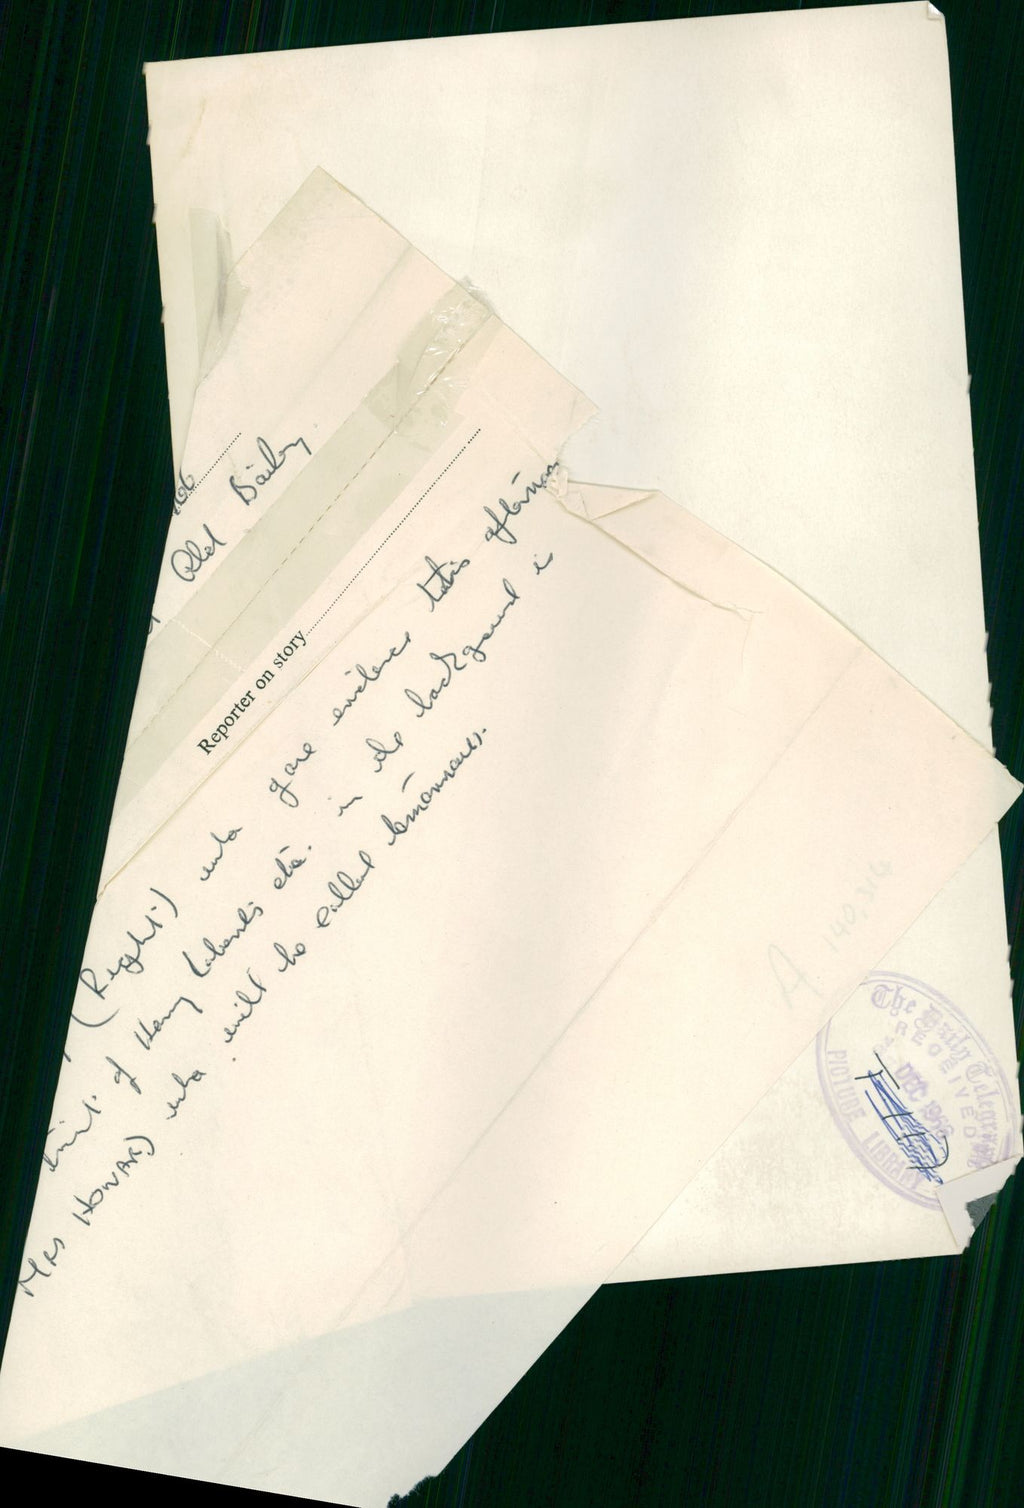 Old Bailey
Reporter on story
(Right) who gave evidence this afternoon
of Harry Roberts etc. in the background is
Mrs HOWARD who will be called tomorrow.
A 140,316
The Daily Telegraph
RECEIVED
DEC 1966
PICTURE LIBRARY